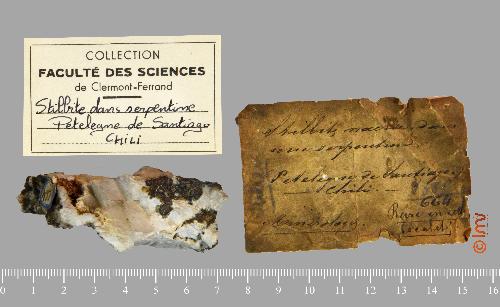 COLLECTION
FACULTÉ DES SCIENCES
de Clermont-Ferrand
Stilbite dans serpentine
Petelegne de Santiago
CHILI
Stilbite nacrée dans
une serpentine
de Santiago
Chili
664
Rare
0 1 2 3 4 5 6 7 8 9 10 11 12 13 14 15 16
© im√